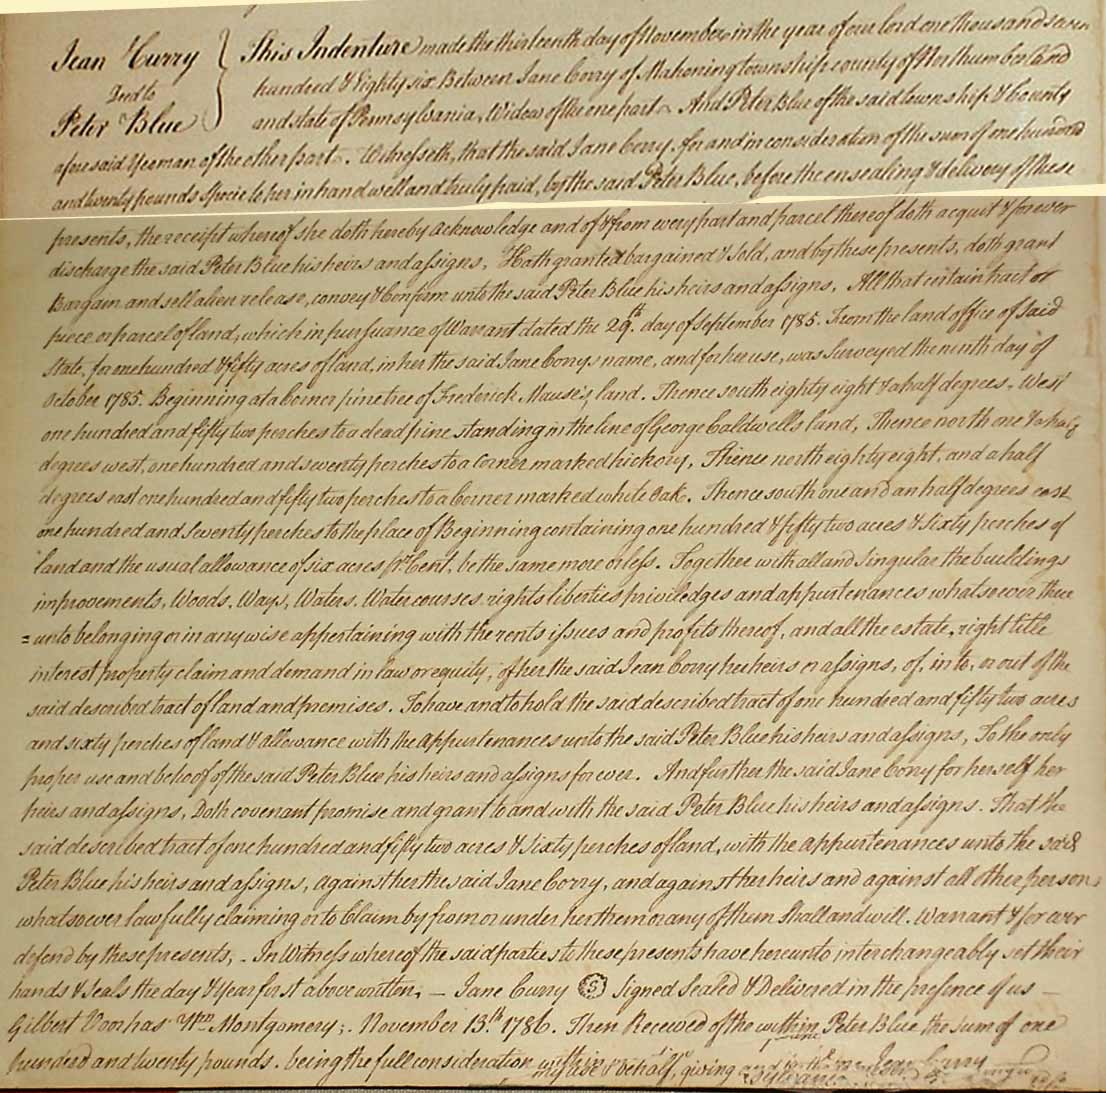 Jean Curry
Deed to
Peter Blue
This Indenture made the thirteenth day of November in the year of our lord one thousand seven
hundred & Eighty six Between Jane Corry of Mahoning township county of Northumberland
and state of Pennsylvania, Widow of the one part. And Peter Blue of the said township & County
afore said Yeoman of the other part. Witnesseth, that the said Jane Corry, for and in consideration of the sum of one hundred
and twenty pounds specie to her in hand well and truly paid, by the said Peter Blue, before the ensealing & delivery of these
presents, the receipt whereof she doth hereby acknowledge and of & from every part and parcel thereof doth acquit & forever
discharge the said Peter Blue his heirs and assigns. Hath granted bargained & Sold, and by these presents, doth grant
Bargain and sell alien release, convey & Confirm unto the said Peter Blue his heirs and assigns, All that certain tract or
piece or parcel of land, which in pursuance of Warrant dated the 29th. day of September 1785. From the land office of said
State, for one hundred & fifty acres of land, in her the said Jane Corrys name, and for her use, was Surveyed the ninth day of
October 1785. Beginning at a Corner pine tree of Frederick Mause's, land. Thence south eighty eight & a half degrees. West
one hundred and fifty two perches to a dead pine standing in the line of George Caldwells land, Thence north one & a half
degrees west, one hundred and seventy perches to a Corner marked hickory, Thence north eighty eight, and a half
degrees east one hundred and fifty two perches to a Corner marked white Oak. Thence south one and an half degrees east
one hundred and seventy perches to the place of Beginning containing one hundred & fifty two acres & Sixty perches of
land and the usual allowance of six acres pr. Cent, be the same more or less. Together with all and Singular the buildings
improvements, Woods, Ways, Waters, Water courses, rights liberties priviledges and appurtenances whatsoever there
=unto belonging or in any wise appertaining with the rents issues and profits thereof, and all the estate, right title
interest property claim and demand in law or equity, of her the said Jean Corry her heirs or assigns, of, in to, or out of the
said described tract of land and premises. To have and to hold the said described tract of one hundred and fifty two acres
and sixty perches of land & allowance with the appurtenances unto the said Peter Blue his heirs and assigns, To the only
proper use and behoof of the said Peter Blue his heirs and assigns for ever. And further the said Jane Corry for herself her
heirs and assigns, Doth covenant promise and grant to and with the said Peter Blue his heirs and assigns. That the
said described tract of one hundred and fifty two acres & Sixty perches of land, with the appurtenances unto the said
Peter Blue his heirs and assigns, against her the said Jane Corry, and against her heirs and against all other persons
whatsoever lawfully claiming or to Claim by from or under her them or any of them Shall and will. Warrant & for ever
defend by these presents, - In Witness whereof the said parties to these presents have hereunto interchangeably set their
hands & Seals the day & Year first above written. — Jane Curry S Signed Sealed & Delivered in the presence of us —
Gilbert Voorhas Wm Montgomery;. November 13.th 1786. Then Received of the within Peter Blue the sum of one
hundred and twenty pounds. being the full consideration within behalf, giving Jean Curry